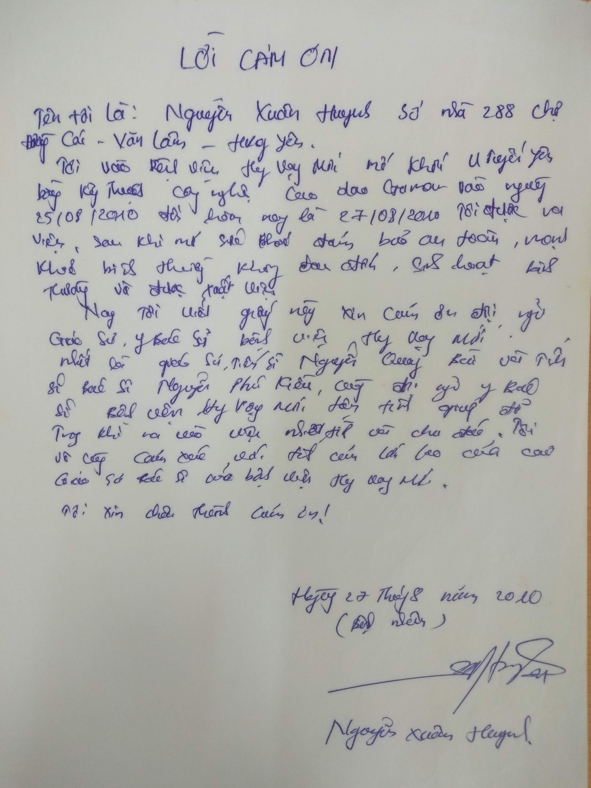 LỜI CẢM ƠN
Tên tôi là: Nguyễn Xuân Huynh Số nhà 288 chợ
Đường Cái - Văn Lâm - Hưng Yên.
Tôi vào bệnh viện Hy Vọng Mới mổ khối U tuyến yên
bằng kỹ thuật công nghệ Cao dao Gamma vào ngày
25/08/2010 đến hôm nay là 27/08/2010 Tôi được ra
viện, sau khi mổ sức khoẻ đảm bảo an toàn, mạnh
khoẻ bình thường không đau đớn, sinh hoạt bình
thường và được xuất viện
Nay tôi viết giấy này xin cám ơn đội ngũ
Giáo sư, y bác sĩ bệnh viện Hy vọng Mới.
nhất là giáo sư, tiến sĩ Nguyễn Quang và Tiến
sĩ Bác sĩ Nguyễn Phú Kiều, cùng đội ngũ y bác
sĩ Bệnh viện Hy Vọng Mới tận tình giúp đỡ
Trong khi ra vào viện và chu đáo. Tôi
vô cùng với của các
Giáo sư bác sĩ của bệnh viện Hy vọng Mới.
Tôi xin chân thành cám ơn!
27 Tháng 8 năm 2010
(Bệnh nhân)
Nguyễn Xuân Huynh